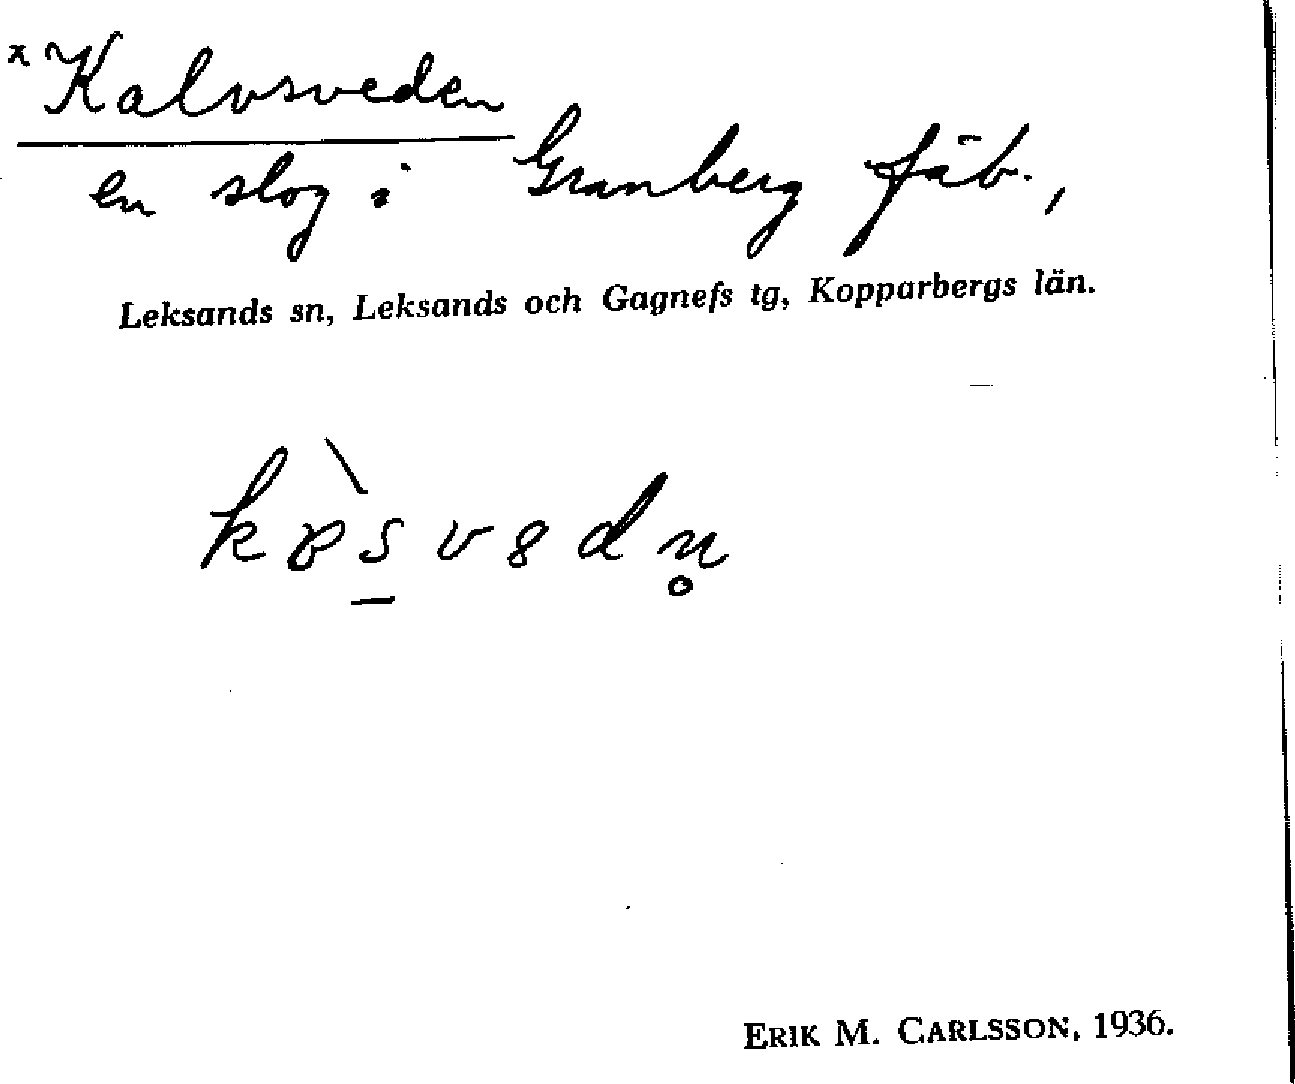 ×Kalvsveden
en slog i Granberg fäb.,
Leksands sn, Leksands och Gagnefs tg, Kopparbergs län.
ERIK M. CARLSSON, 1936.